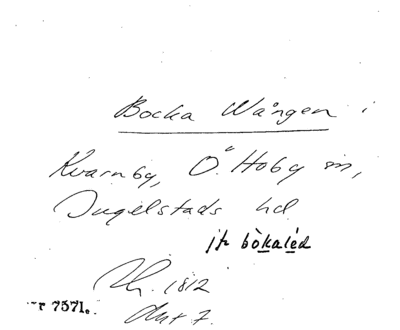 Bocka Wången i
Kvarnby, Ö. Hoby sn,
Ingelstads hd
jfr bòkaléd
1812
Akt 7.
7571.